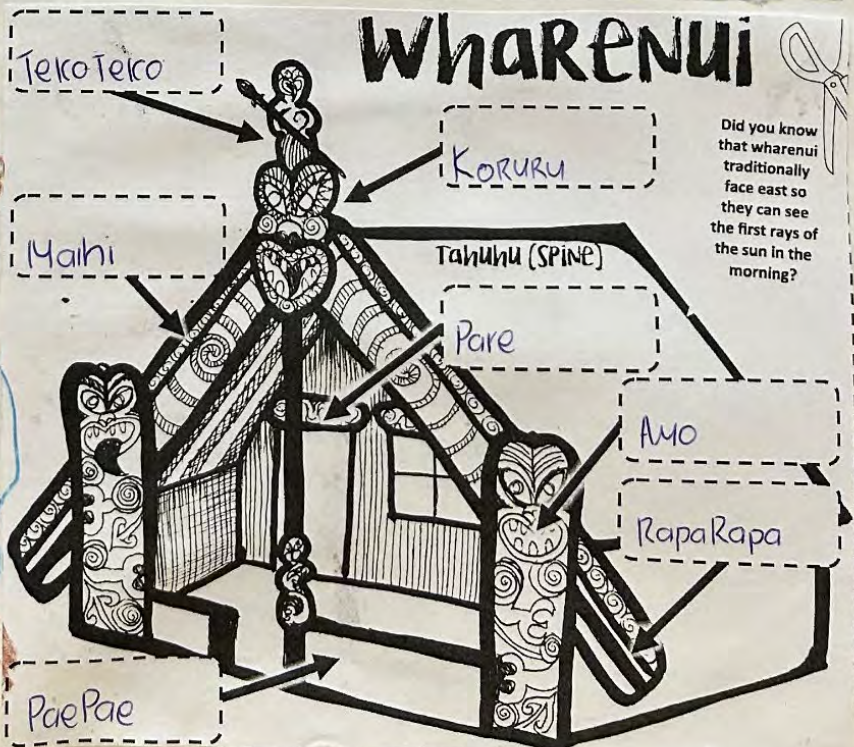 WHARENUI
TekoTeko
KORURU
Did you know
that wharenui
traditionally
face east so
they can see
the first rays of
the sun in the
morning?
Maihi
Tahuhu (SPINE)
Pare
AMO
RapaRapa
PaePae